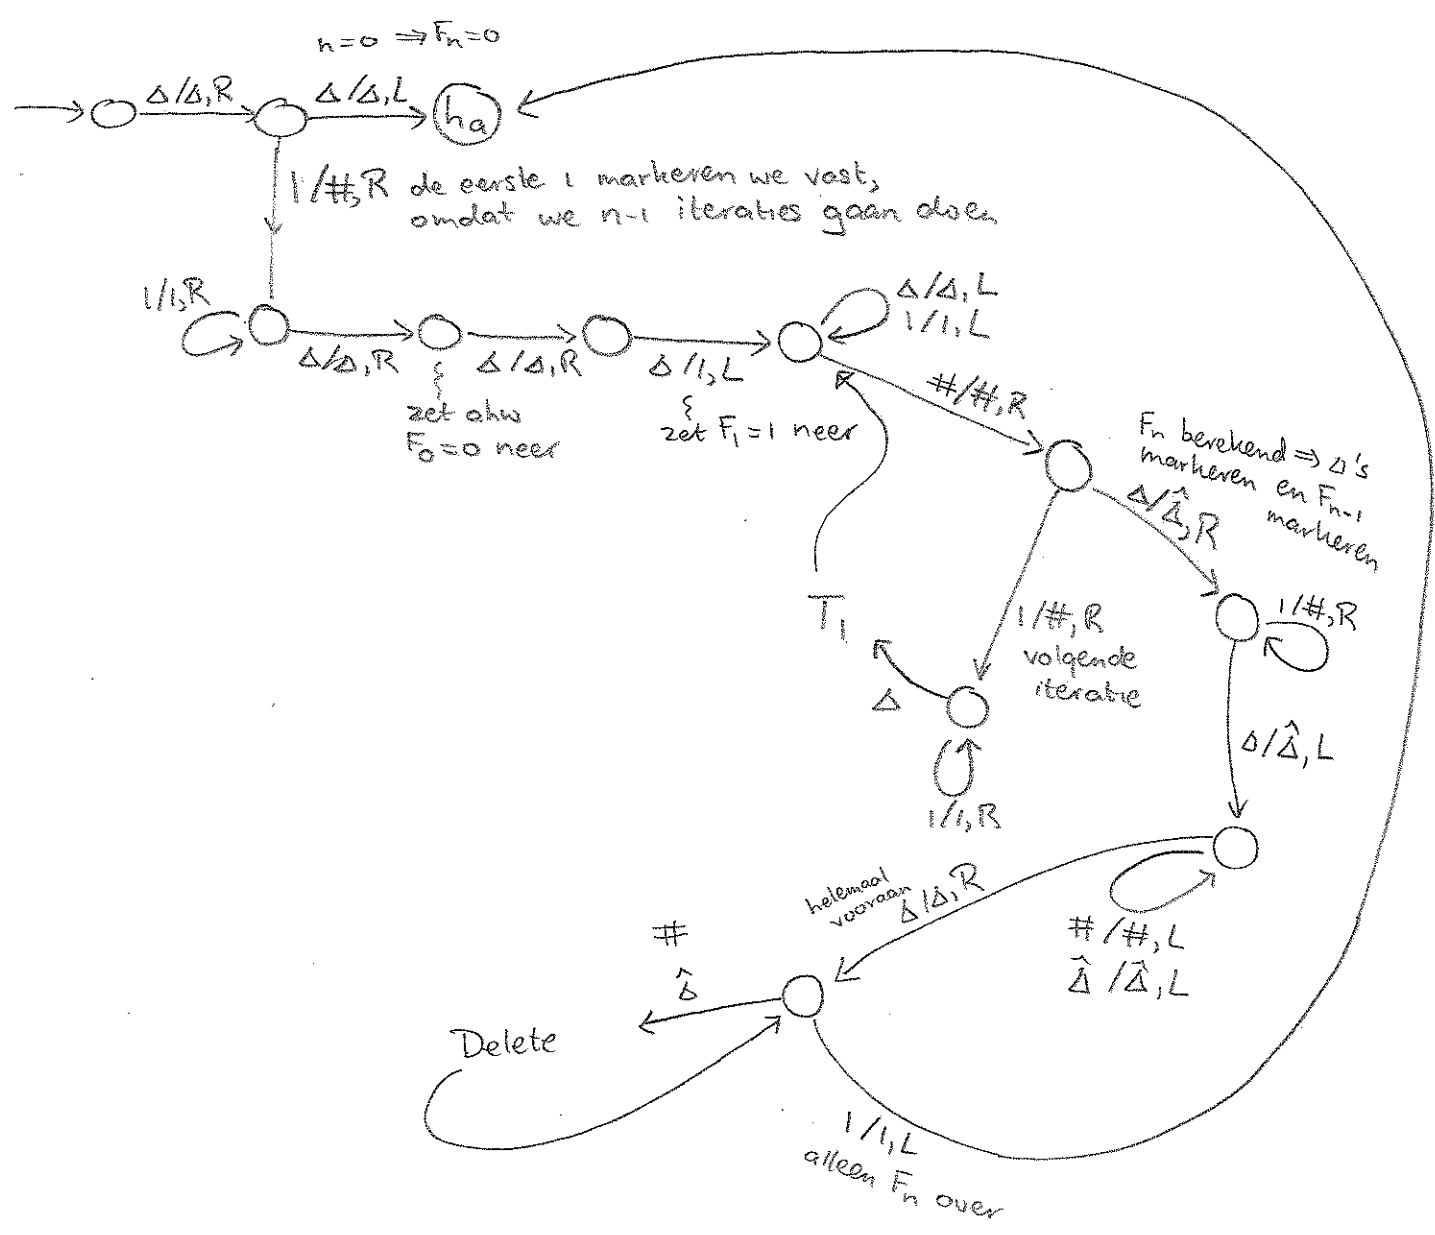 n=0 ⇒ Fn=0
Δ/Δ,R
Δ/Δ,L
ha
1/#,R de eerste 1 markeren we vast,
omdat we n-1 iteraties gaan doen
1/1,R
Δ/Δ,R
zet ahw
F0=0 neer
Δ/Δ,R
Δ/1,L
zet F1=1 neer
Δ/Δ,L
1/1,L
#/#,R
Fn berekend ⇒ Δ's
markeren en Fn-1
markeren
Δ/Δ̂,R
1/#,R
T1
1/#,R
volgende
iteratie
Δ
1/1,R
Δ/Δ̂,L
helemaal
vooraan
Δ/Δ,R
#/#,L
Δ̂/Δ̂,L
#
Δ̂
Delete
1/1,L
alleen Fn over